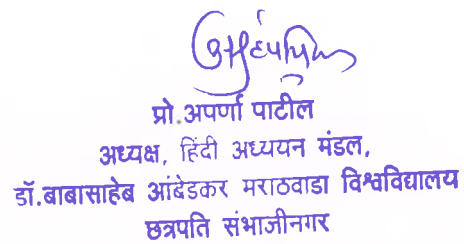 प्रो.अपर्णा पाटील
अध्यक्ष, हिंदी अध्ययन मंडल,
डॉ.बाबासाहेब आंबेडकर मराठवाडा विश्वविद्यालय
छत्रपति संभाजीनगर